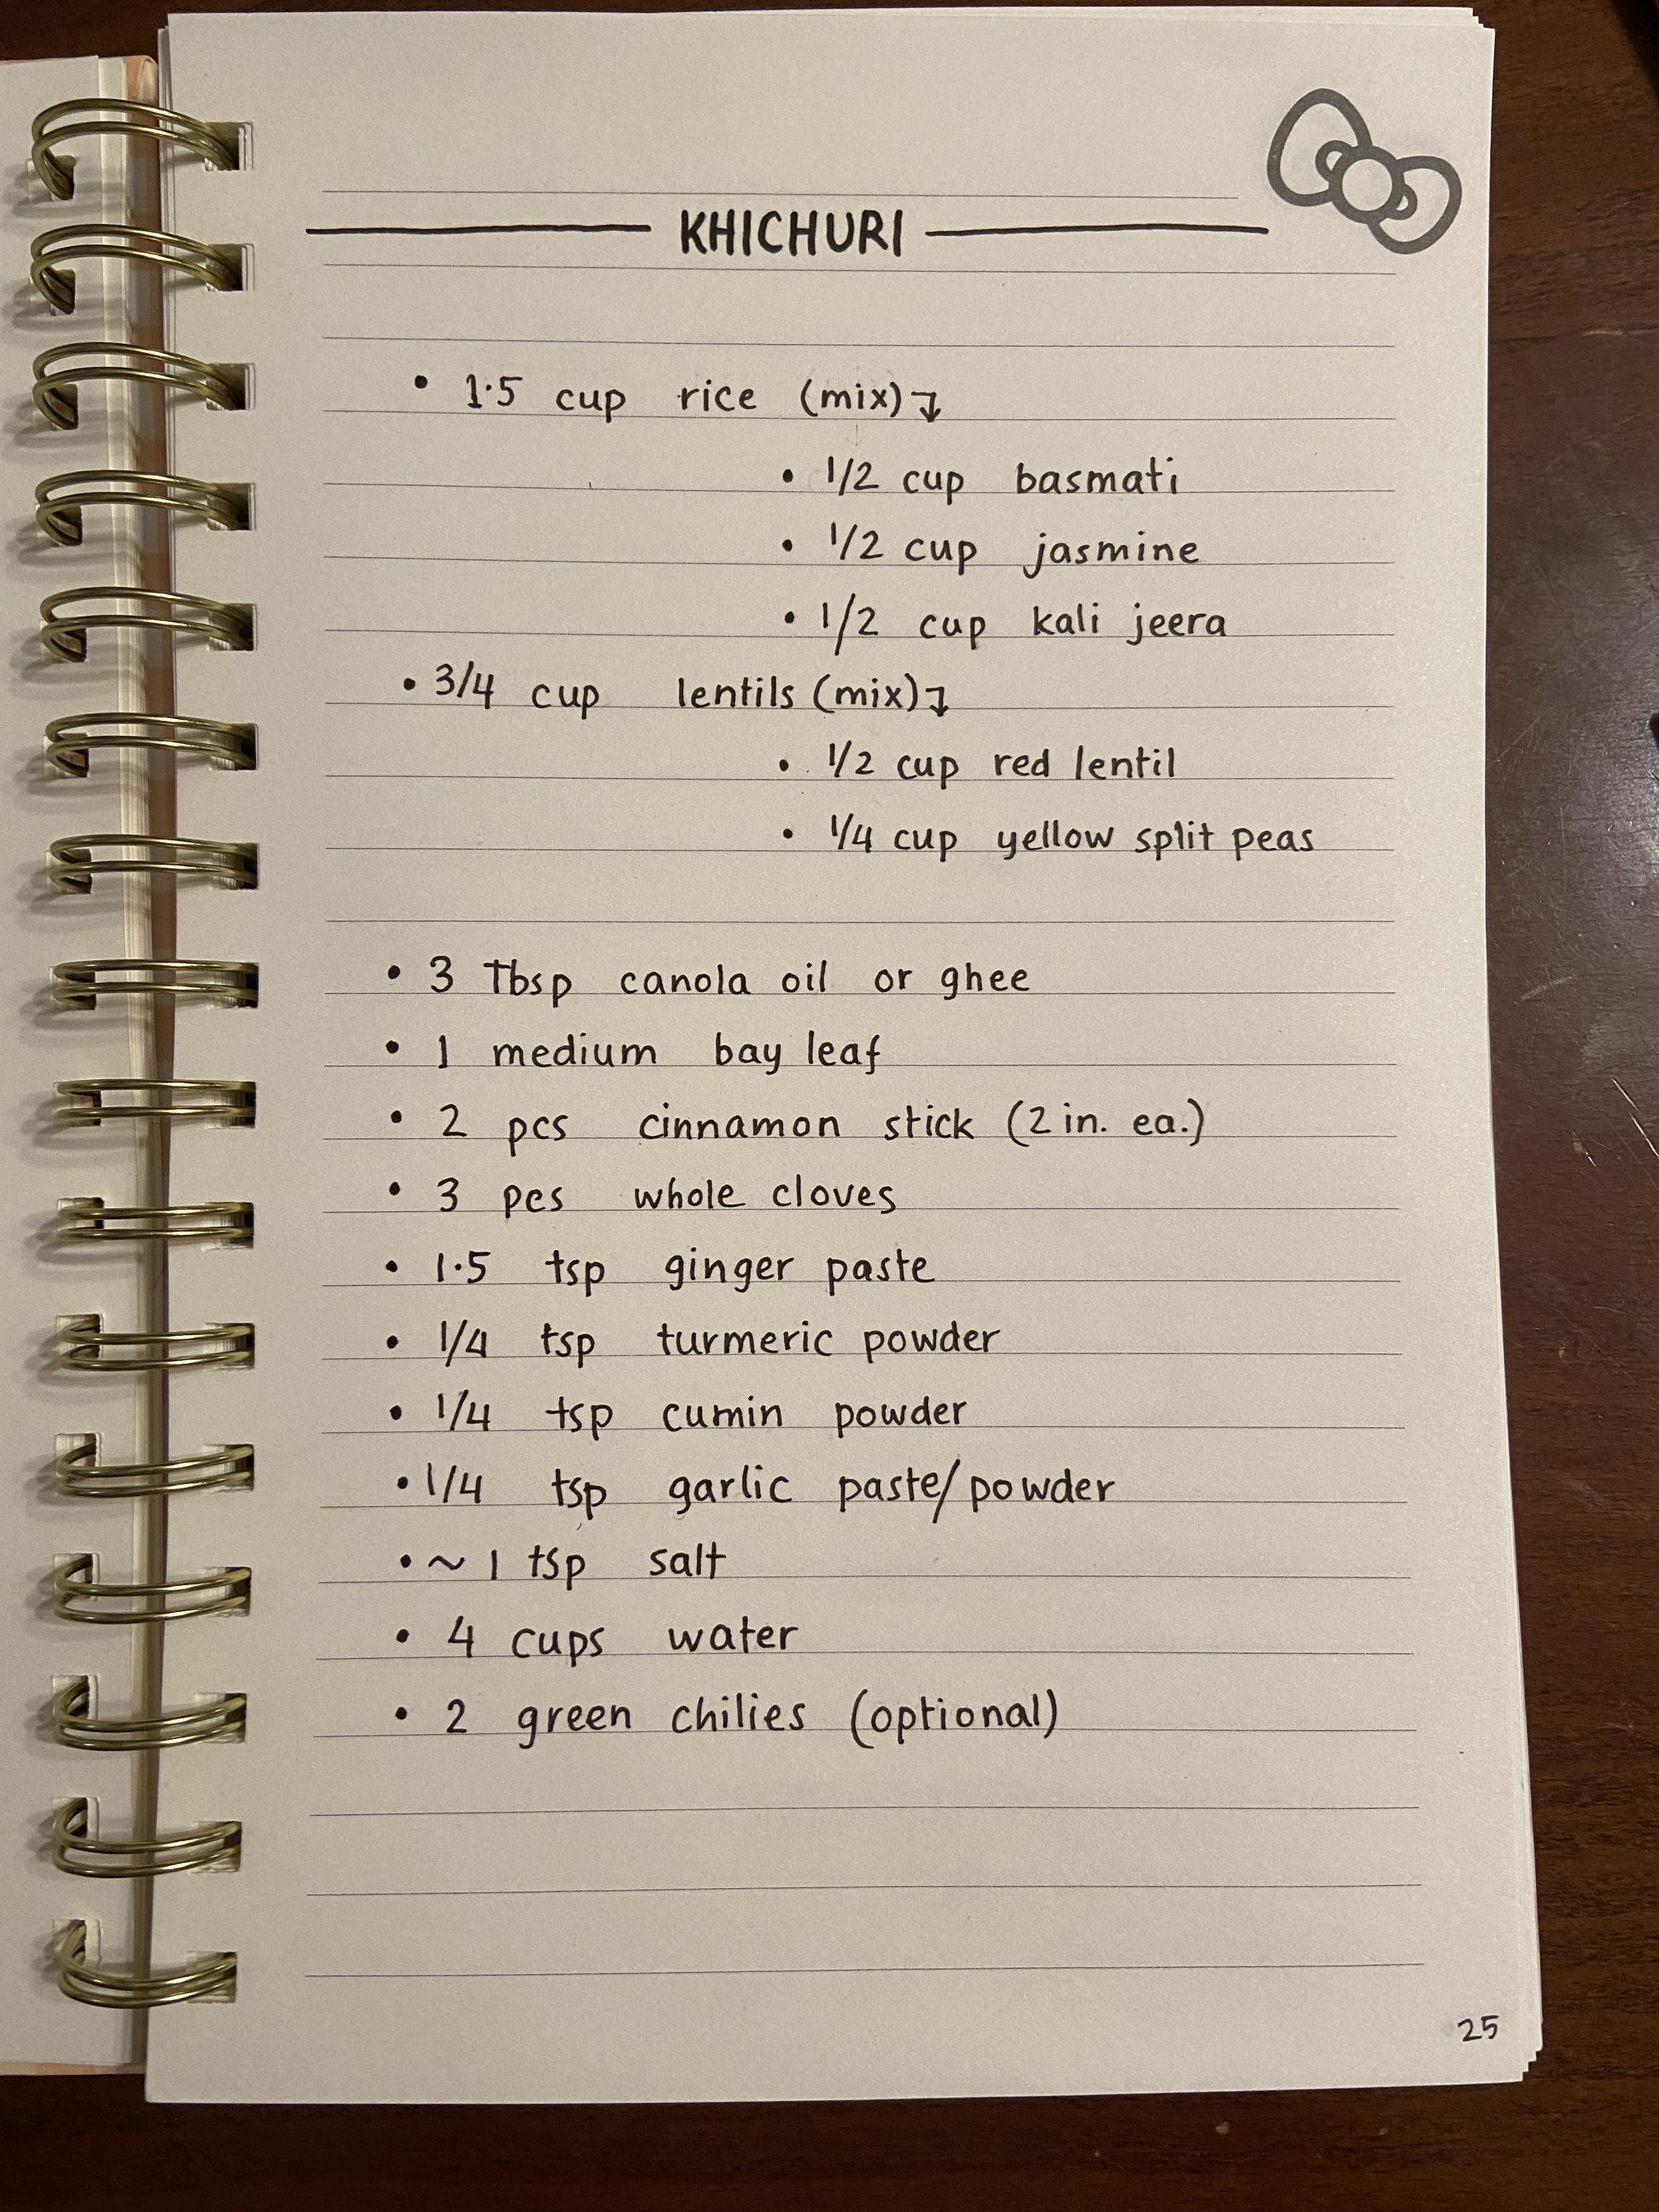 KHICHURI
• 1.5 cup rice (mix) ↴
• 1/2 cup basmati
• 1/2 cup jasmine
• 1/2 cup kali jeera
• 3/4 cup lentils (mix) ↴
• 1/2 cup red lentil
• 1/4 cup yellow split peas
• 3 Tbsp canola oil or ghee
• 1 medium bay leaf
• 2 pcs cinnamon stick (2 in. ea.)
• 3 pcs whole cloves
• 1.5 tsp ginger paste
• 1/4 tsp turmeric powder
• 1/4 tsp cumin powder
• 1/4 tsp garlic paste/powder
• ~ 1 tsp salt
• 4 cups water
• 2 green chilies (optional)
25